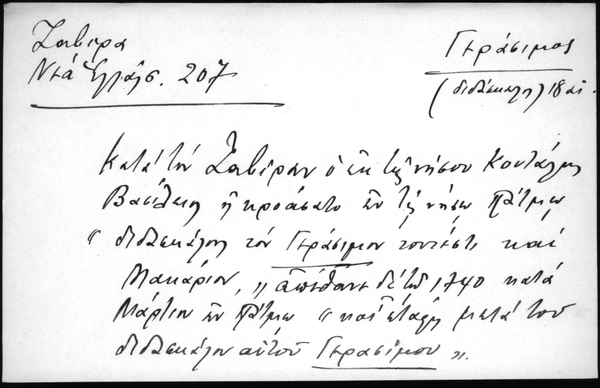 Ζαβίρα
Νέα Ἑλλάς. 207
Γεράσιμος
(διδάσκαλος) 18 αἰ.
Κατά τόν Ζαβίραν ὁ ἐκ τῆς νήσου Κουτάλης
Βασίλειος ἠκροάσατο ἐν τῇ νήσῳ Πάτμῳ
" διδασκάλους τόν Γεράσιμον τουτέστι καί
Μακάριον, " ἀπέθανε δέ τῷ 1740 κατά
Μάρτιον ἐν Πάτμῳ " καί ἐτάφη μετά τοῦ
διδασκάλου αὐτοῦ Γερασίμου ".